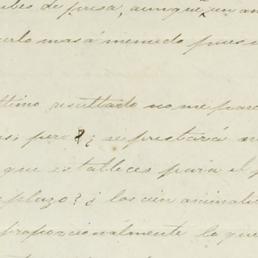 des de prisa, aunque un an
erlo mas á menudo pues n
ltimo resultado no me parec
as; pero ¿ se prestará a
que estableces para el p
plazo? ¿ los cien animalit
proporcionalmente lo que